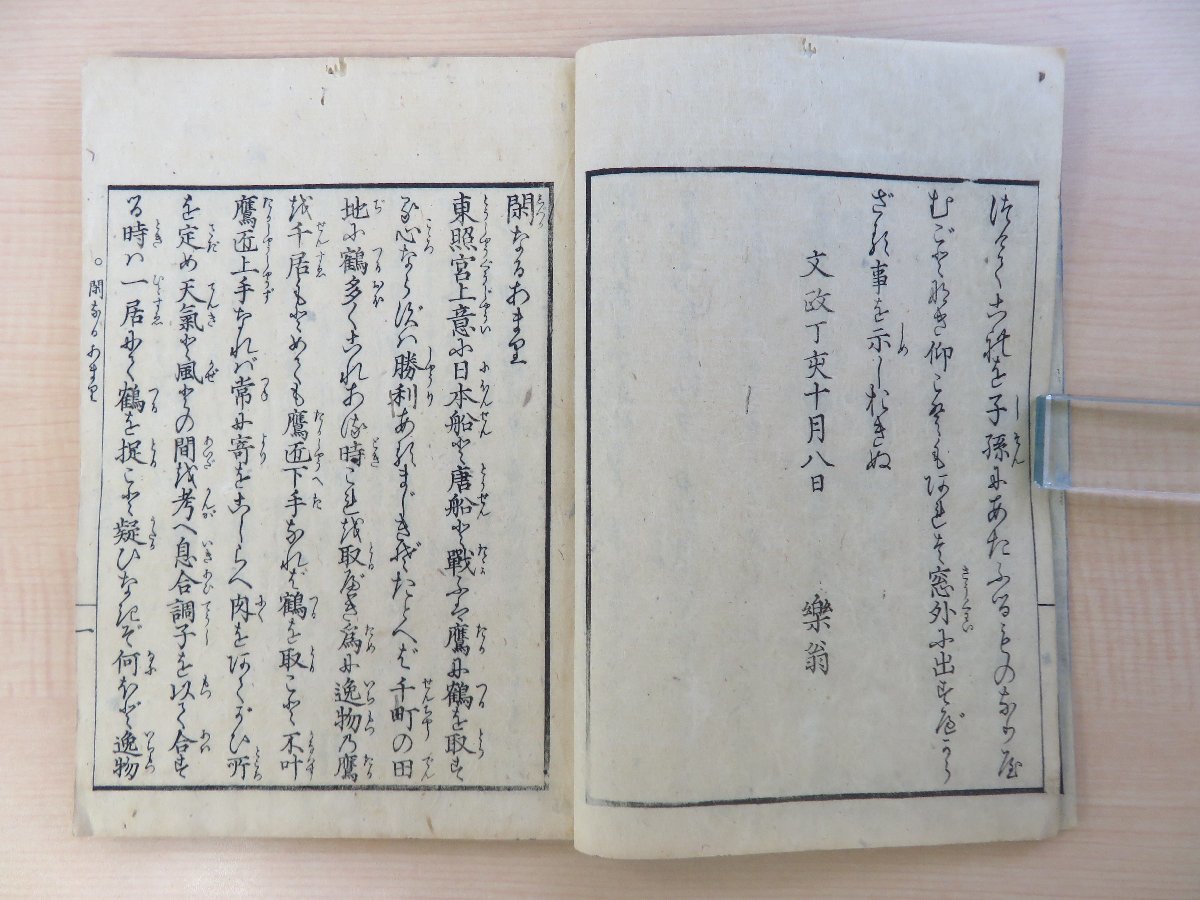 これを子孫にあたふるものなり
むごとき仰ことも窓外に出すべから
ざる事を示しおきぬ
文政丁亥十月八日
樂翁
閑なるあまり
東照宮上意に日本船と唐船と戰ふは鷹に鶴を取す
る心ならずハ勝利あるまじきぞたとへば千町の田
地に鶴多くこれある時これを取べき爲に逸物乃鷹
を千居もとめても鷹匠下手なれば鶴を取こと不叶
鷹匠上手なれば常に寄をこしらへ肉をあてがひ所
を定め天氣と風との間を考へ息合調子を以て合す
る時ハ一居にて鶴を捉こと疑ひなきぞ何ほど逸物
閑なるあまり
一